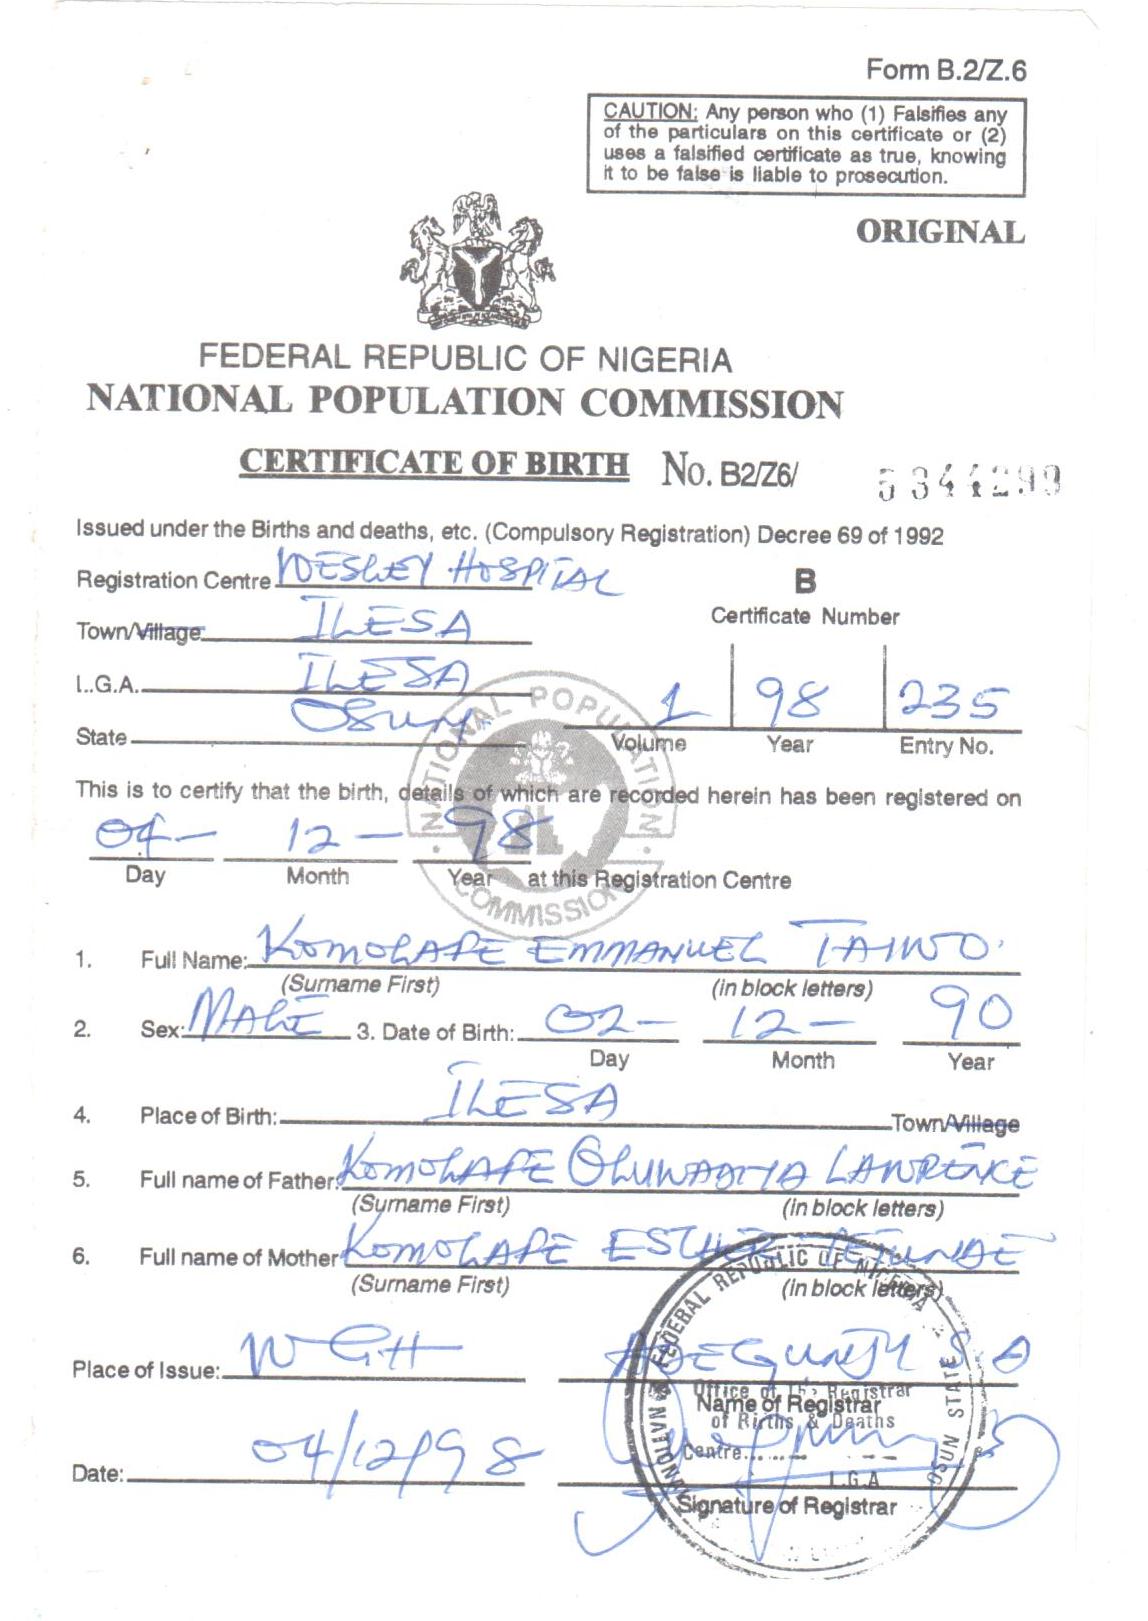 Form B.2/Z.6
CAUTION: Any person who (1) Falsifies any
of the particulars on this certificate or (2)
uses a falsified certificate as true, knowing
it to be false is liable to prosecution.
ORIGINAL
FEDERAL REPUBLIC OF NIGERIA
NATIONAL POPULATION COMMISSION
CERTIFICATE OF BIRTH No. B2/Z6/ 5344299
Issued under the Births and deaths, etc. (Compulsory Registration) Decree 69 of 1992
Registration Centre WESLEY HOSPITAL
B
Certificate Number
Town/Village ILESA
L.G.A. ILESA
State OSUN
1 98 235
Volume Year Entry No.
NATIONAL POPULATION COMMISSION
This is to certify that the birth, details of which are recorded herein has been registered on
04 - 12 - 98
Day Month Year at this Registration Centre
1. Full Name: KOMOLAFE EMMANUEL TAIWO.
(Surname First) (in block letters)
2. Sex: MALE 3. Date of Birth: 02 - 12 - 90
Day Month Year
4. Place of Birth: ILESA Town/Village
5. Full name of Father: KOMOLAFE LAWRENCE
(Surname First) (in block letters)
6. Full name of Mother KOMOLAFE ESTHER
(Surname First) (in block letters)
Place of Issue: WGH ADEGUNJU S.A
Name of Registrar
Date: 04/12/98
Signature of Registrar
FEDERAL REPUBLIC OF NIGERIA
Office of the Registrar
of Births & Deaths
Centre
L.G.A
OSUN STATE